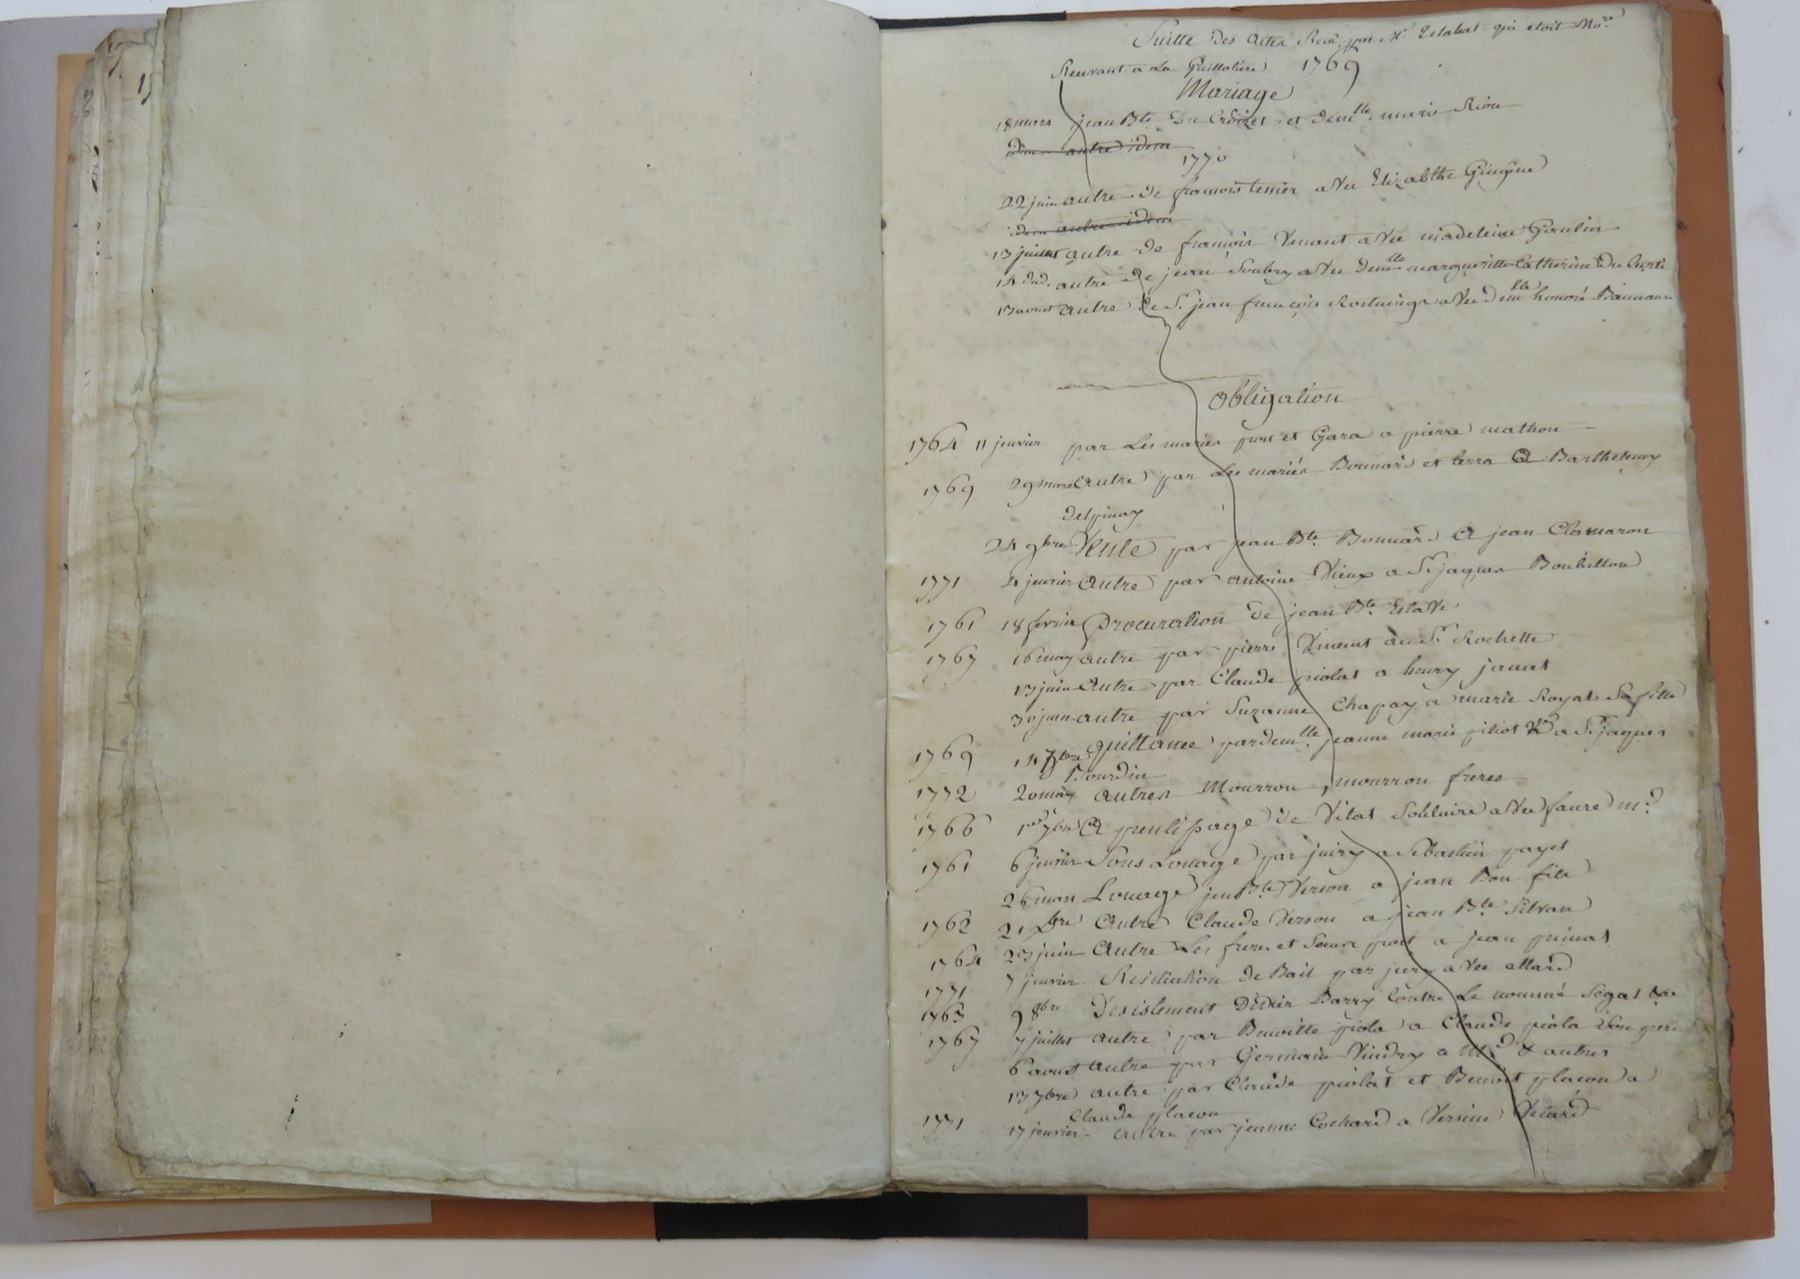 Suitte des actes Recu par Me qui etoit Nore
a La Guillotiere 1769
Mariage
18 mars jean Bte Du et demlle marie Riou
idem autre idem
1770
22 juin autre de francois tessier avec Elizabthe
idem autre idem
13 juillet autre de françois Vinant avec madeleine Goulin
14 dud. autre de jean Soubry avec demlle margueritte Catherine du
13 aoust autre de Sr jean françois avec demlle honoré
Obligation
1764 11 jenvier par Les mariés et Gara a pierre mathon
1769 29 mars autre par Les mariés Bonnard et terra A Barthelemy
delpinay
24 9bre Vente par jean Bte Bonnard A jean Clamaron
1771 4 jenvier autre par antoine Vieux a Sr jaques
1761 18 fevrier procuration de jean Bte
1767 16 may autre par pierre Vincent au Sr Rochette
13 juin autre par Claude piolat a henry jamet
30 juin autre par Suzanne Chapay a marie Royat Sa fille
1769 14 7bre quittance par demlle jeanne marie a Sr jaques
Bourdin
1772 20 may autres Mourrou mourrou freres
1766 1er 7bre Apentissage de Vital Solitaire avec faure md
1761 6 jenvier Sous Louage par juiry a Sebastien payet
26 mars Louage Bte Verson a jean Bon fils
1762 21 bre autre Claude Verson a jean Bte Silvan
1764 23 juin autre Les freres et Soeurs a jean
1771 7 jenvier Resiliation de Bail par avec allard
1763 9 8bre Desistement Didier Barry Contre Le nommé Segat
1767 7 juillet autre par Benoitte piola a Claude piola Son pere
6 aoust autre par Germain Vindry a & autres
13 7bre autre par Claude piolat et Benoit placon a
Claude placon
1771 17 jenvier autre par jeanne Cochard a Vicard